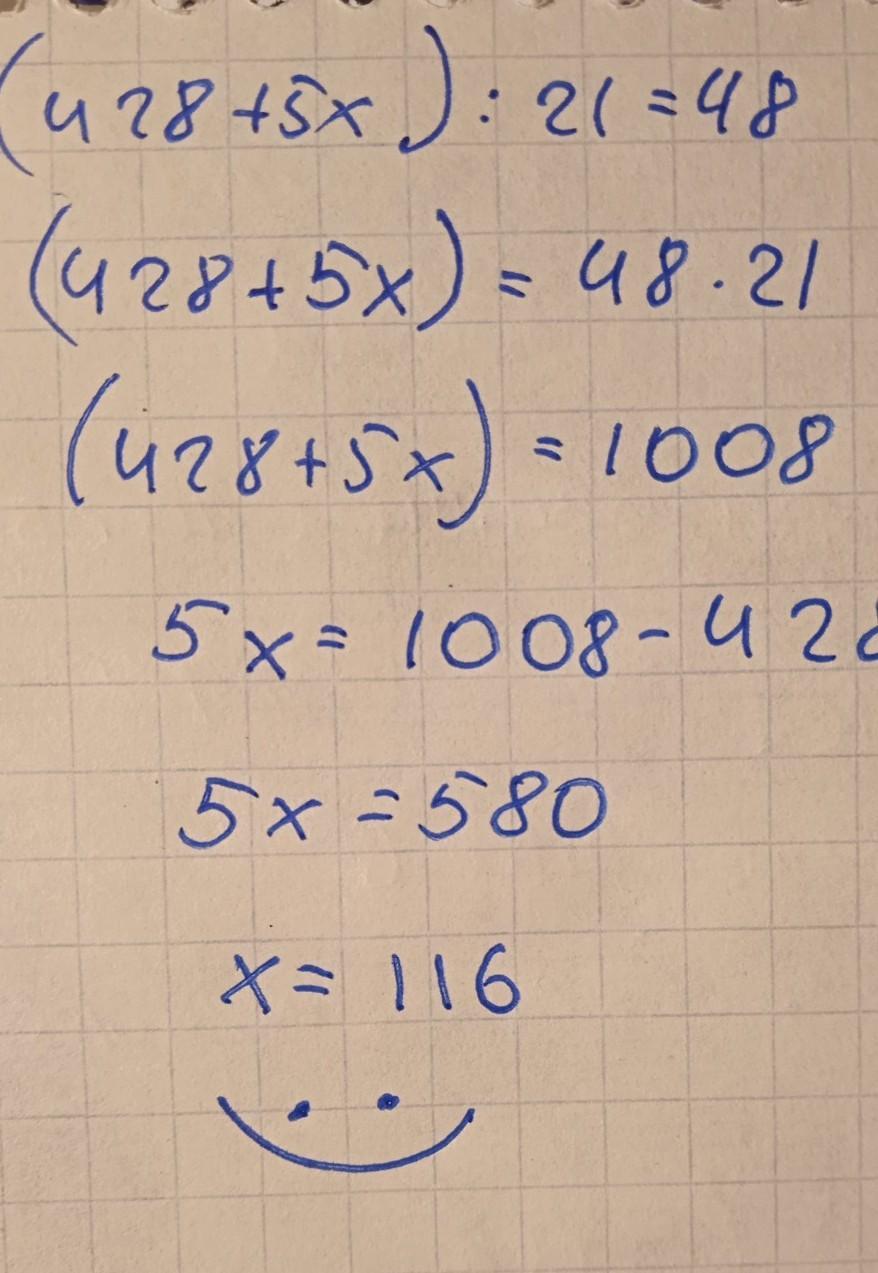 (428+5x) : 21 = 48
(428+5x) = 48 · 21
(428+5x) = 1008
5x = 1008 - 428
5x = 580
x = 116